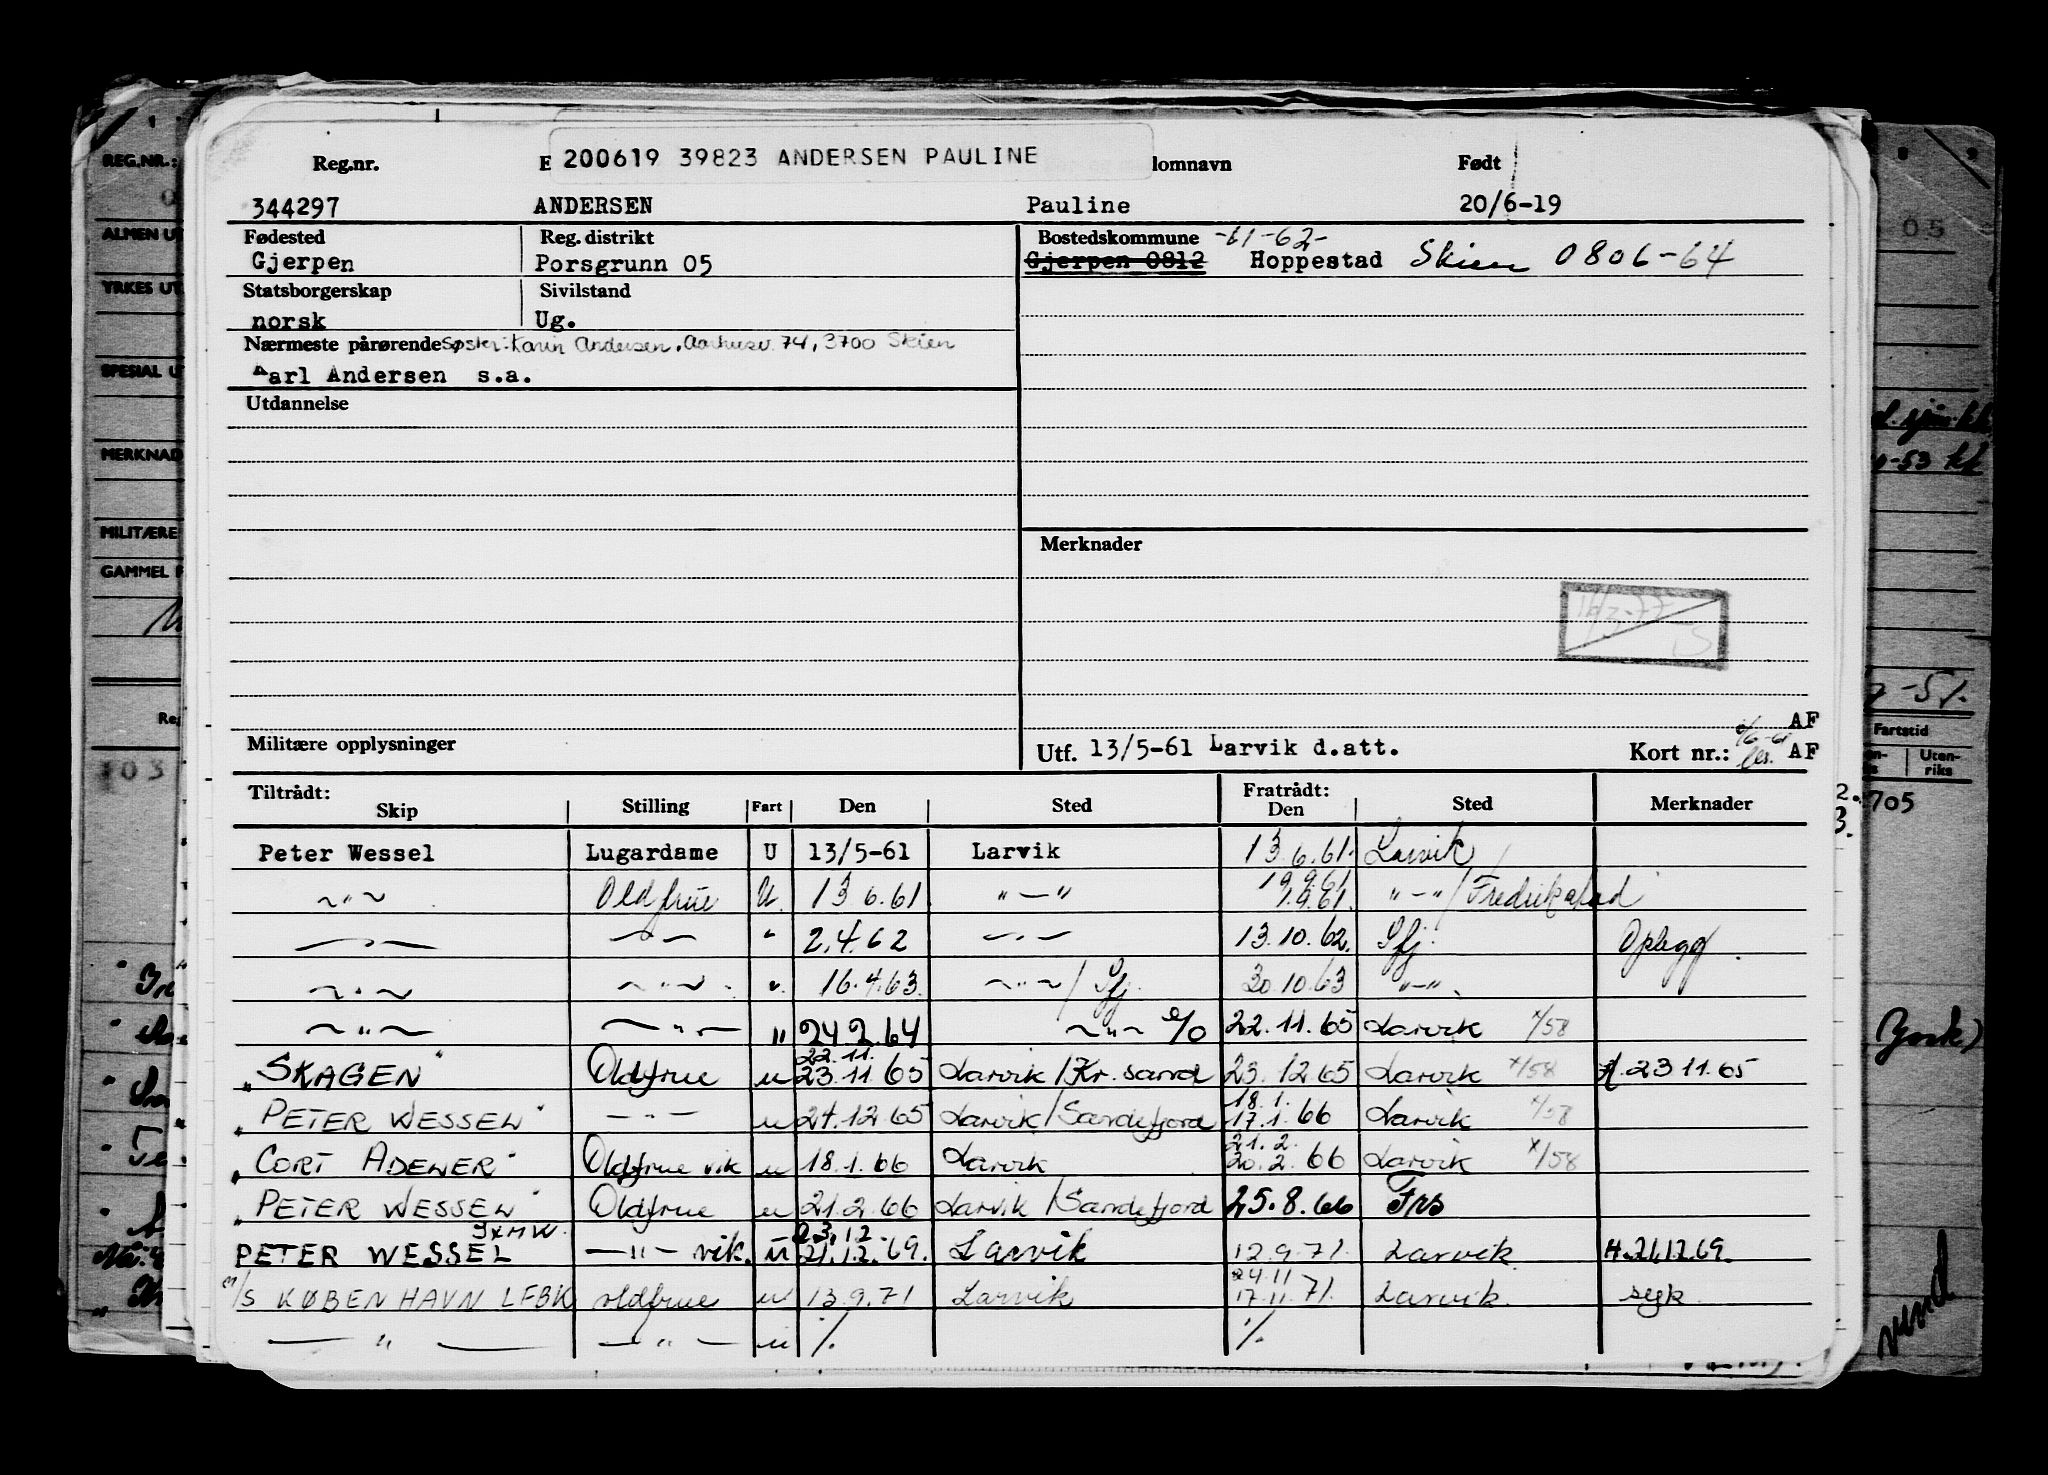 Reg.nr. E 200619 39823 ANDERSEN PAULINE lomnavn Født
344297 ANDERSEN Pauline 20/6-19
Fødested Reg. distrikt Bostedskommune -61-62-
Gjerpen Porsgrunn 05 Gjerpen 0812 Hoppestad Skien 0806-64
Statsborgerskap Sivilstand
norsk Ug.
Nærmeste pårørende Søster: Karin Andersen, Aarhusv. 74, 3700 Skien
Karl Andersen s.a.
Utdannelse
Merknader
16/3-77
AF
Militære opplysninger Utf. 13/5-61 Larvik d.att. Kort nr.: AF
Tiltrådt: Fratrådt:
Skip Stilling Fart Den Sted Den Sted Merknader
Peter Wessel Lugardame U 13/5-61 Larvik 13.6.61. Larvik
19.9.61
~"~ Oldfrue U. 13 6.61. "—" 1.9.61. "—"/Fredrikstad
—"— —"— " 2.4.62 —"— 13.10.62. Sfj. Oplegg.
—"— —"— " 16.4.63. —"—/Sfj. 30.10.63 "—".
—"— —"— " 24 2.64 —"— 22.11.65 Larvik x/58
22.11.
"SKAGEN" Oldfrue u 23.11.65 Larvik/Kr.sand 23.12.65 Larvik x/58 H.23 11.65
18.1.
"PETER WESSEL" —"— u 24.12.65 Larvik/Sandefjord 17.1.66 Larvik x/58
21.2.
"CORT ADELER" Oldfrue vik u 18.1.66 Larvik 20.2.66 Larvik x/58
"PETER WESSEL" Oldfrue u 21.2.66 Larvik/Sandefjord 25.8.66 Frs
JXMW. 23.12.
PETER WESSEL —"— vik. u 21.12.69. Larvik 12.9.71. Larvik. H.21.12.69.
24.11
M/S KØBENHAVN LFBK oldfrue u 13.9.71 Larvik 17.11.71. Larvik. syk.
—"— —"— u %. %.
REG.NR.:
ALMEN UT
YRKES UT
SPESIAL U
MERKNAD
MILITÆRE
GAMMEL
Reg
103
05
-53 kk
-51.
Fartstid
Uten-
riks
705
vend